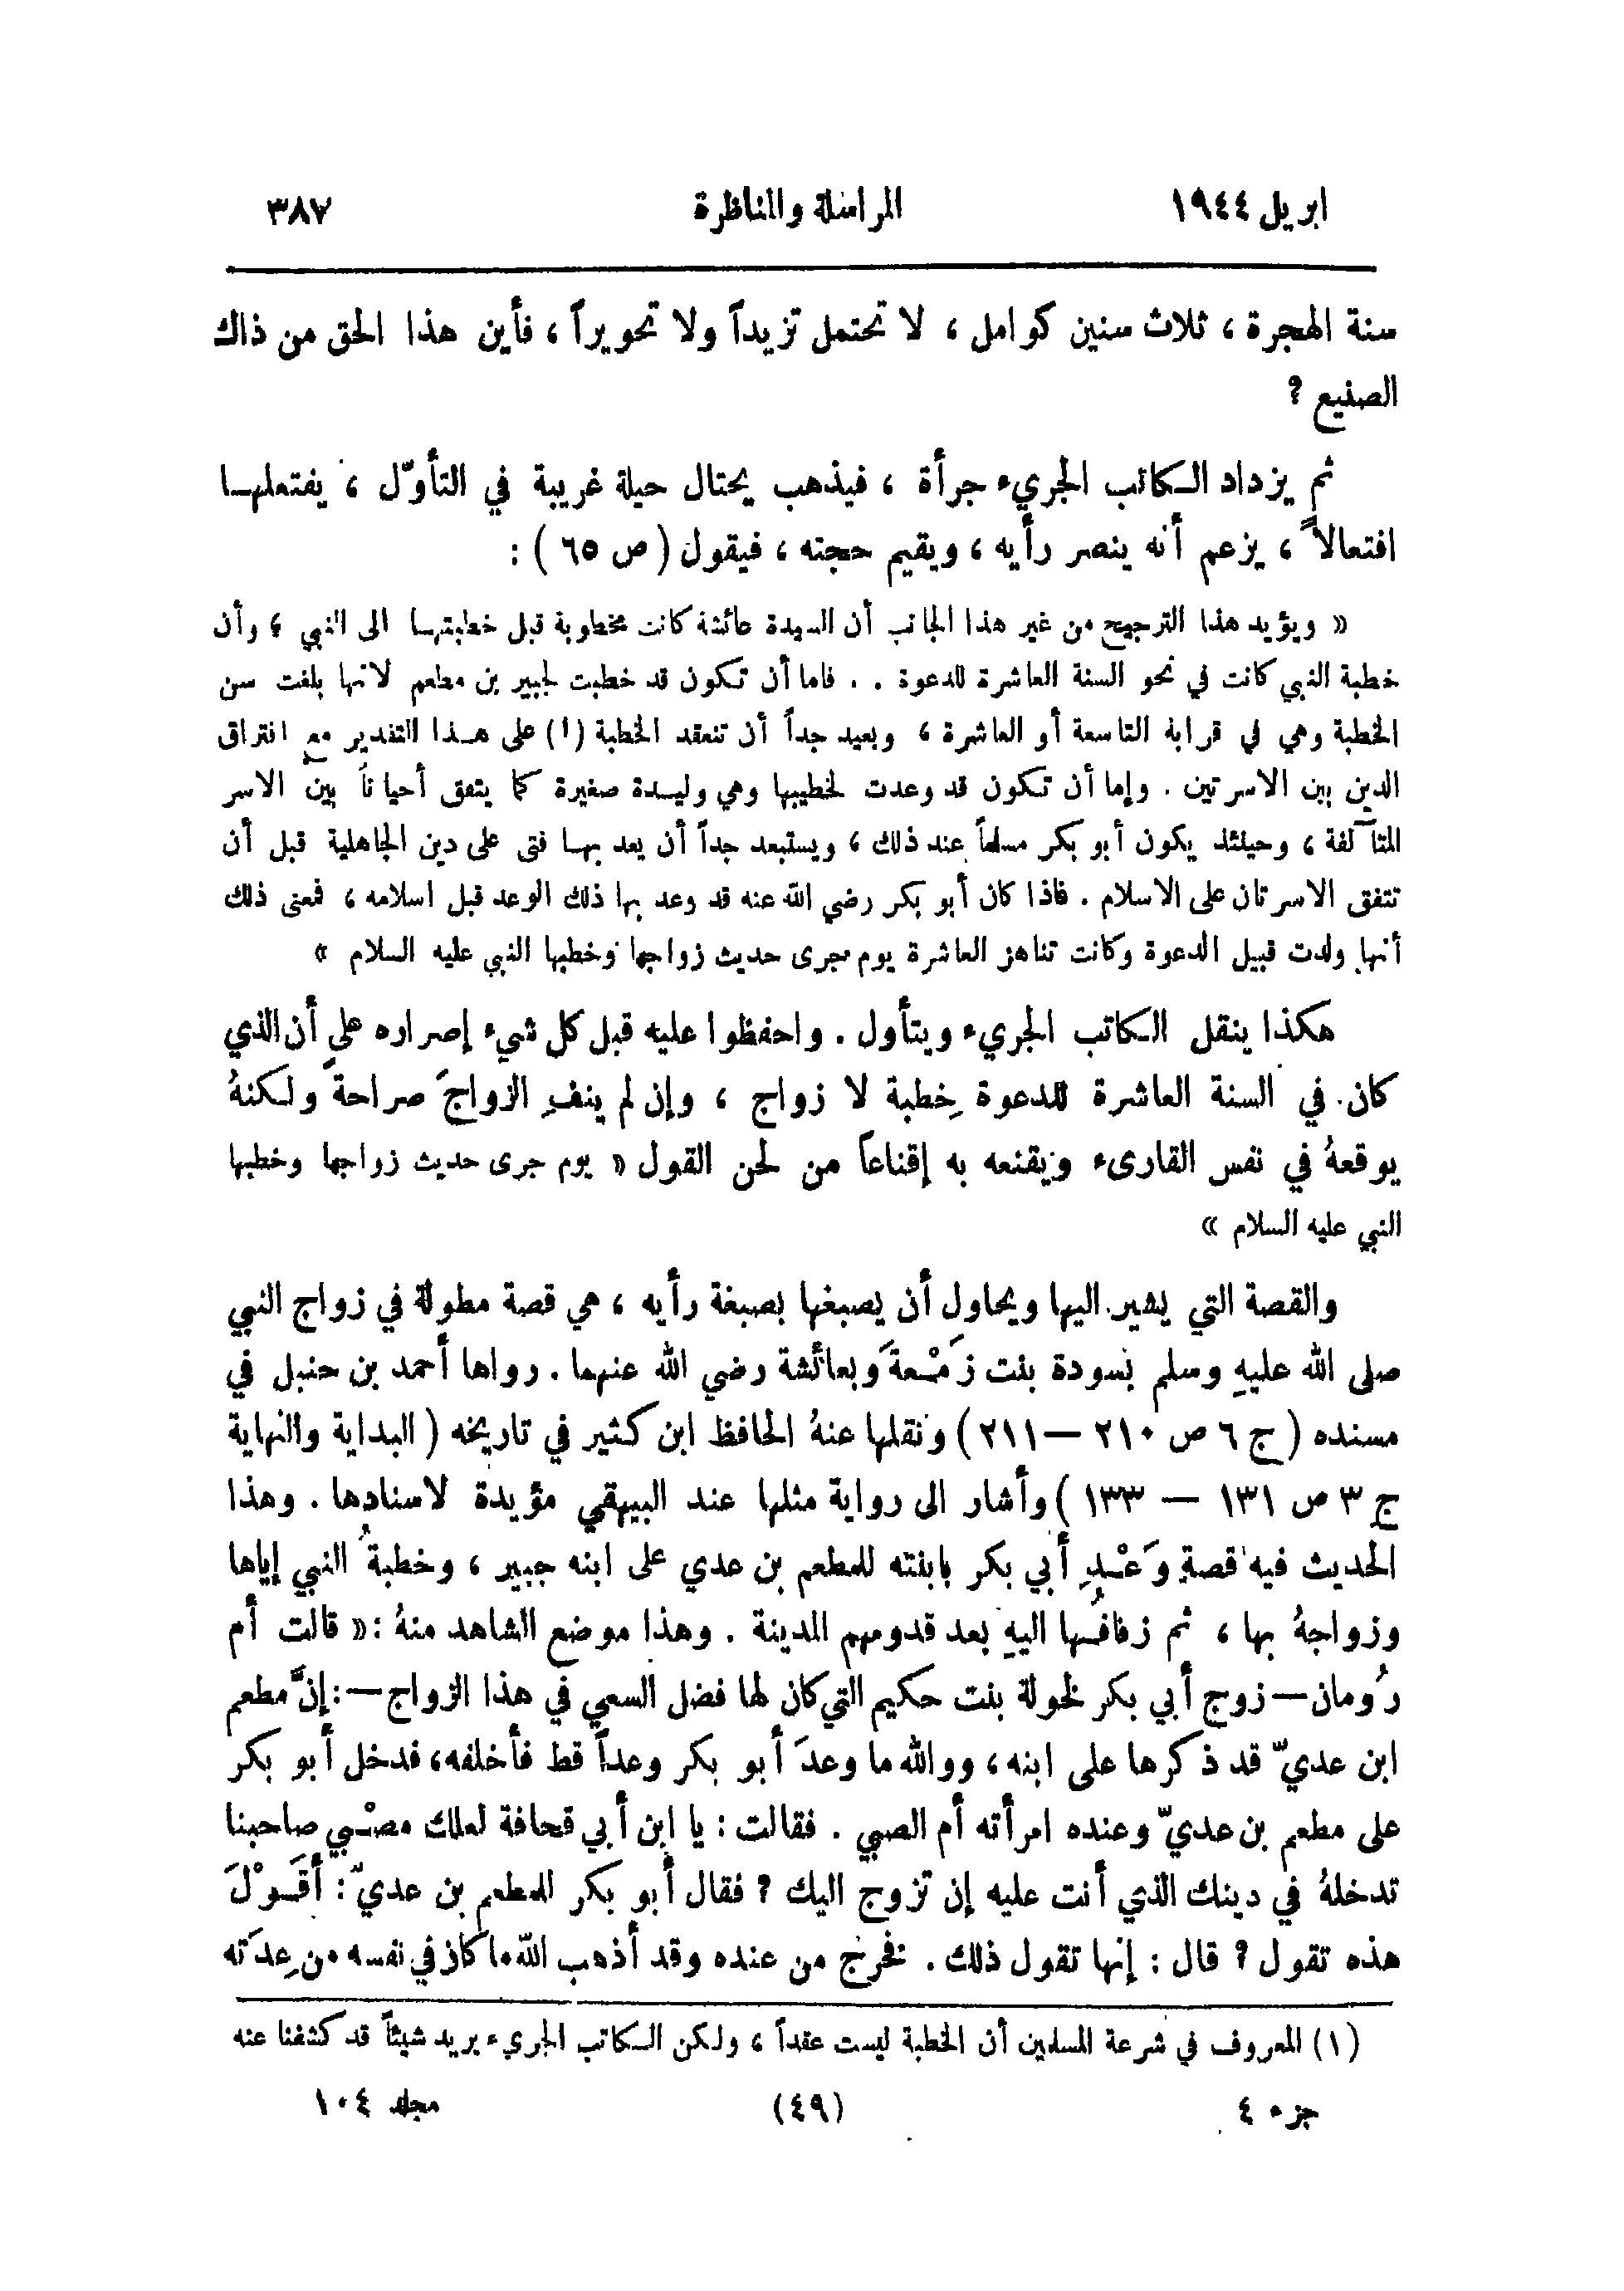 ابريل ١٩٤٤ المراسلة والمناظرة ٣٨٧
سنة الهجرة ، ثلاث سنين كوامل ، لا تحتمل تزيداً ولا تحويراً ، فأين هذا الحق من ذاك
الصنيع ؟
ثم يزداد الكاتب الجريء جرأة ، فيذهب يحتال حيلة غريبة في التأوّل ، يفتعلها
افتعالاً ، يزعم أنه ينصر رأيه ، ويقيم حجته ، فيقول ( ص ٦٥ ) :
« ويؤيد هذا الترجيح من غير هذا الجانب أن السيدة عائشة كانت مخطوبة قبل خطبتها الى النبي ، وأن
خطبة النبي كانت في نحو السنة العاشرة للدعوة . . فاما أن تكون قد خطبت لجبير بن مطعم لانها بلغت سن
الخطبة وهي في قرابة التاسعة أو العاشرة ، وبعيد جداً أن تنعقد الخطبة (١) على هذا التقدير مع افتراق
الدين بين الاسرتين . وإما أن تكون قد وعدت لخطيبها وهي وليدة صغيرة كما يتفق أحياناً بين الاسر
المتآلفة ، وحينئذ يكون أبو بكر مسلماً عند ذلك ، ويستبعد جداً أن يعد بها فتى على دين الجاهلية قبل أن
تتفق الاسرتان على الاسلام . فاذا كان أبو بكر رضي الله عنه قد وعد بها ذلك الوعد قبل اسلامه ، فمعنى ذلك
أنها ولدت قبيل الدعوة وكانت تناهز العاشرة يوم جرى حديث زواجها وخطبها النبي عليه السلام »
هكذا ينقل الكاتب الجريء ويتأول . واحفظوا عليه قبل كل شيء إصراره على أن الذي
كان في السنة العاشرة للدعوة خِطبة لا زواج ، وإن لم ينفِ الزواجَ صراحةً ولكنهُ
يوقعهُ في نفس القارىء ويقنعه به إقناعاً من لحن القول « يوم جرى حديث زواجها وخطبها
النبي عليه السلام »
والقصة التي يشير اليها ويحاول أن يصبغها بصبغة رأيه ، هي قصة مطولة في زواج النبي
صلى الله عليهِ وسلم بسودة بنت زَمْعةَ وبعائشة رضي الله عنهما . رواها أحمد بن حنبل في
مسنده ( ج ٦ ص ٢١٠ — ٢١١ ) ونقلها عنهُ الحافظ ابن كثير في تاريخه ( البداية والنهاية
ج ٣ ص ١٣١ — ١٣٣ ) وأشار الى رواية مثلها عند البيهقي مؤيدة لاسنادها . وهذا
الحديث فيه قصة وَعْدِ أبي بكر بابنته للمطعم بن عدي على ابنه جبير ، وخطبةُ النبي إياها
وزواجهُ بها ، ثم زفافُها اليهِ بعد قدومهم المدينة . وهذا موضع الشاهد منهُ : « قالت أم
رُومان — زوج أبي بكر لخولة بنت حكيم التي كان لها فضل السعي في هذا الزواج — : إنَّ مطعم
ابن عديّ قد ذكرها على ابنه ، ووالله ما وعدَ أبو بكر وعداً قط فأخلفه ، فدخل أبو بكر
على مطعم بن عديّ وعنده امرأته أم الصبي . فقالت : يا ابن أبي قحافة لعلك مصْبي صاحبنا
تدخلهُ في دينك الذي أنت عليه إن تزوج اليك ؟ فقال أبو بكر للمطعم بن عديّ : أقَوْلَ
هذه تقول ؟ قال : إنها تقول ذلك . فخرج من عنده وقد أذهب الله ما كان في نفسه من عِدَته
(١) المعروف في شرعة المسلمين أن الخطبة ليست عقداً ، ولكن الكاتب الجريء يريد شيئاً قد كشفنا عنه
جزء ٤ (٤٩) مجلد ١٠٤